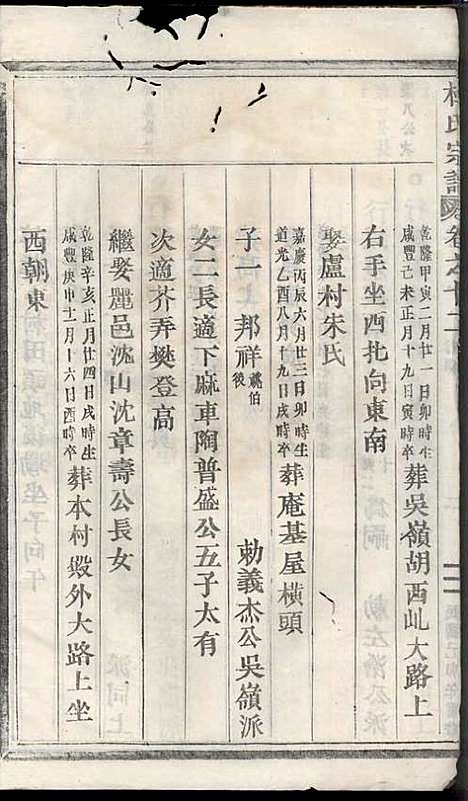 杜氏宗譜卷之十二
乾隆甲寅二月廿一日卯時生
咸豐己未正月十九日寅時卒
葬吳嶺胡西乢大路上
右手坐西北向東南
娶盧村朱氏
嘉慶丙辰六月廿三日卯時生
道光乙酉八月十九日戌時卒
葬庵基屋橫頭
子一 邦祥 祧伯後 勅義杰公吳嶺派
女二長適下麻車陶普盛公五子太有
次適芥弄樊登高
繼娶麗邑沈山沈章壽公長女
乾隆辛亥正月廿四日戌時生
咸豐庚申十二月十六日酉時卒
葬本村毀外大路上坐
西朝東